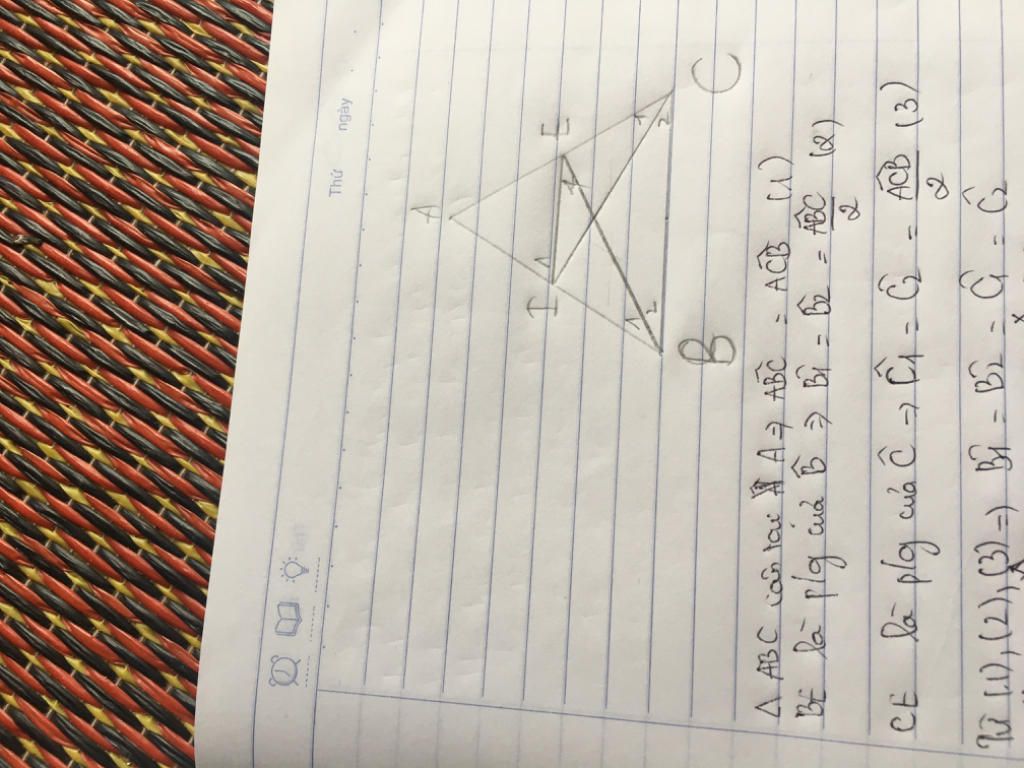 Thứ
ngày
A
I
E
1
1
1
1
2
2
B
C
Δ ABC cân tại A => ABC^ = ACB^ (1)
BE là p/g của B^ => B1^ = B2^ = ABC^/2 (2)
CE là p/g của C^ => C1^ = C2^ = ACB^/2 (3)
Từ (1), (2), (3) => B1^ = B2^ = C1^ = C2^